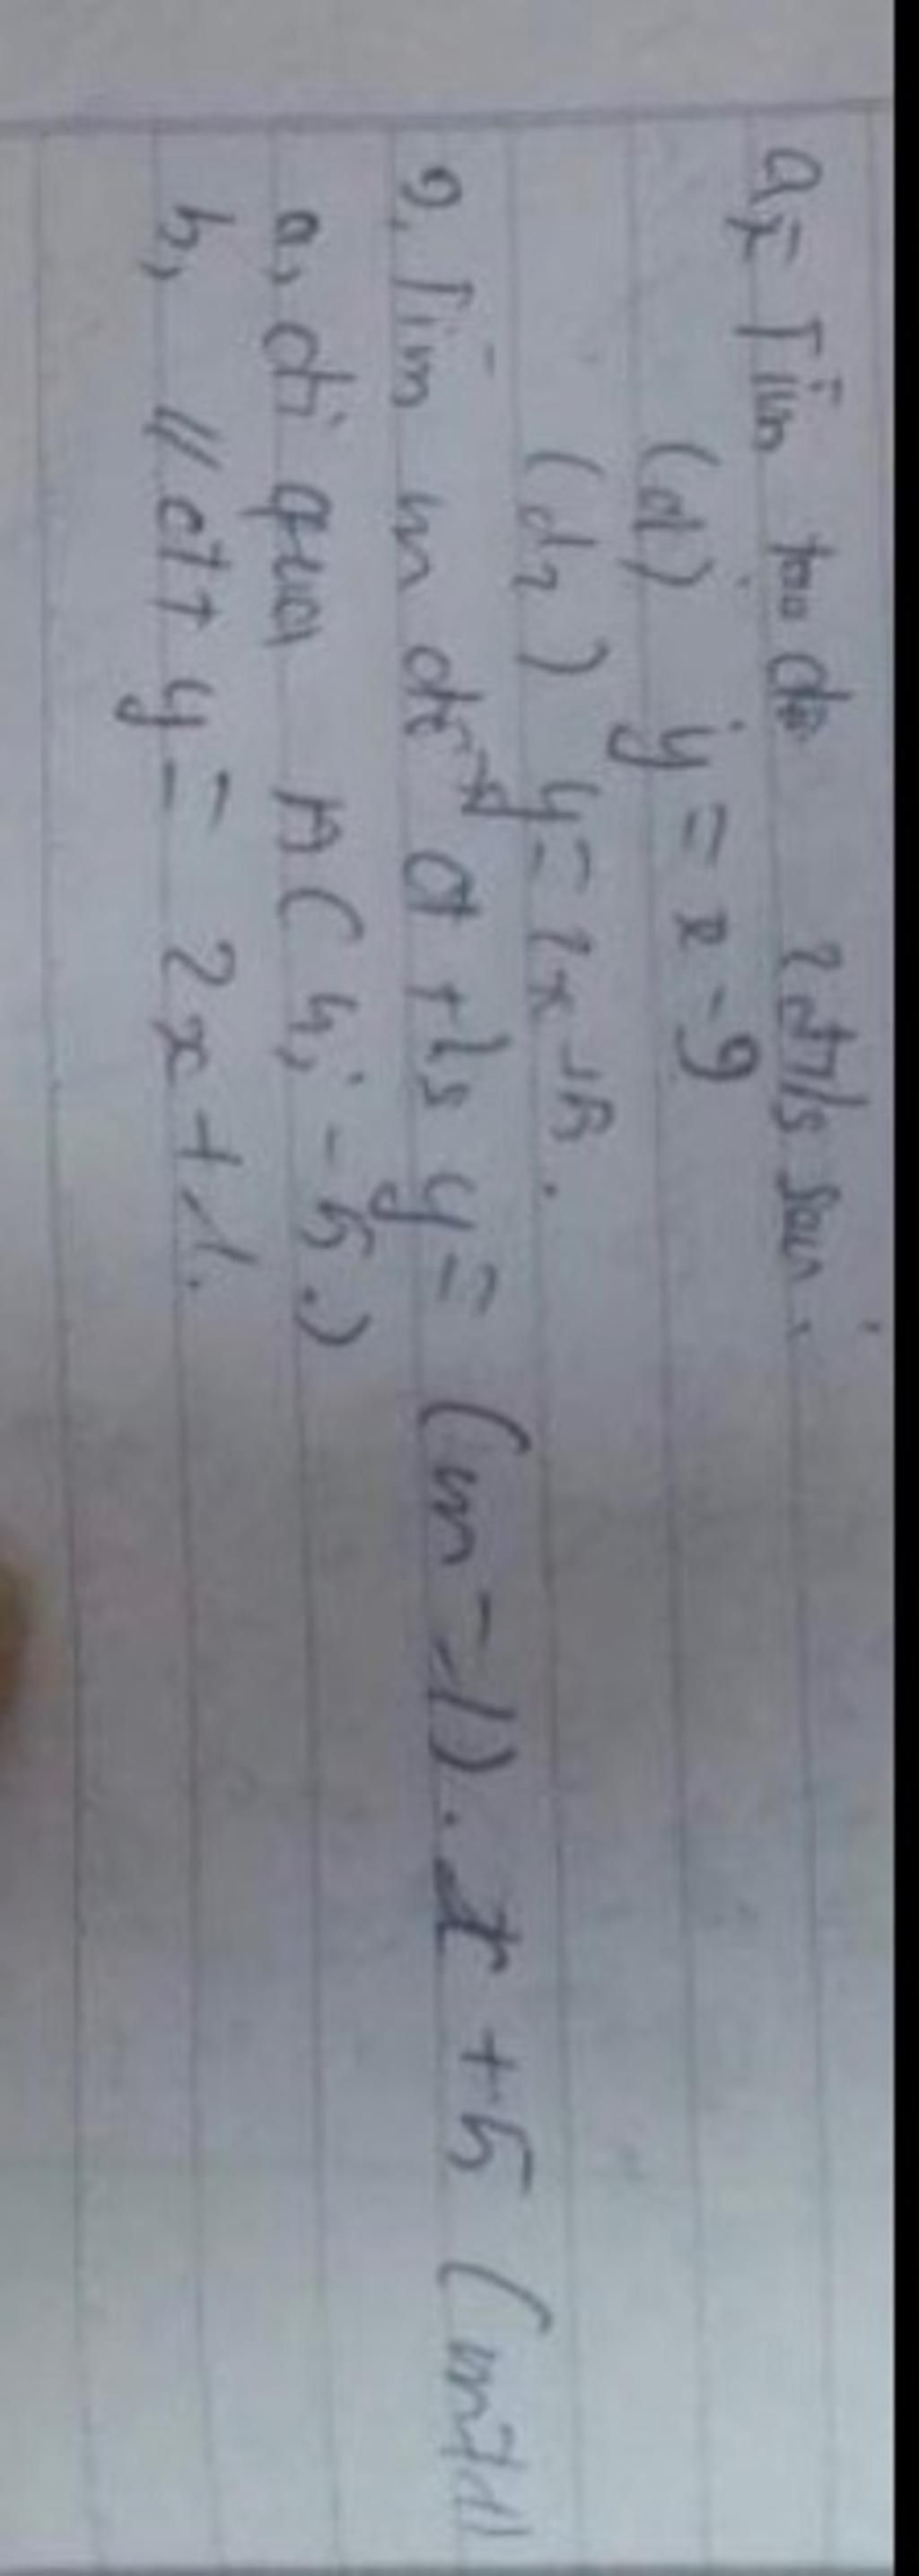 Tìm toạ độ 2 đt/s sau:
(d) y = x - 9
(d2) y = 2x - 15.
9, Tìm m để đths y = (m - 1).x + 5 (m≠1)
a, đi qua A(4; -5)
b, // đt y = 2x + 1.